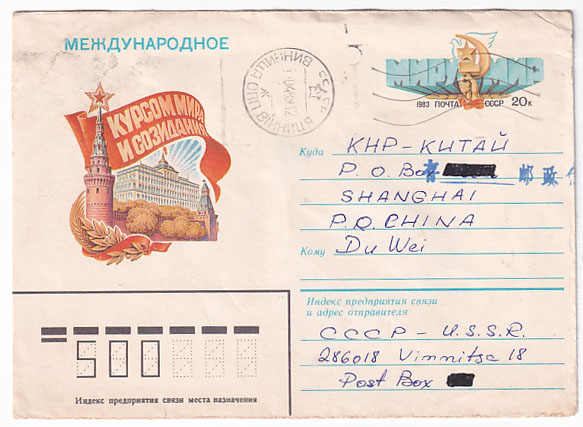 МЕЖДУНАРОДНОЕ
КУРСОМ МИРА
И СОЗИДАНИЯ
ВИННИЦА
МИР МИР
1983 ПОЧТА СССР 20к
Куда КНР-КИТАЙ
P.O. Box
邮政
SHANGHAI
P.Q. CHINA
Кому Du Wei
Индекс предприятия связи
и адрес отправителя
СССР - U.S.S.R.
286018 Vinnitsa 18
Post Box
500
Индекс предприятия связи места назначения